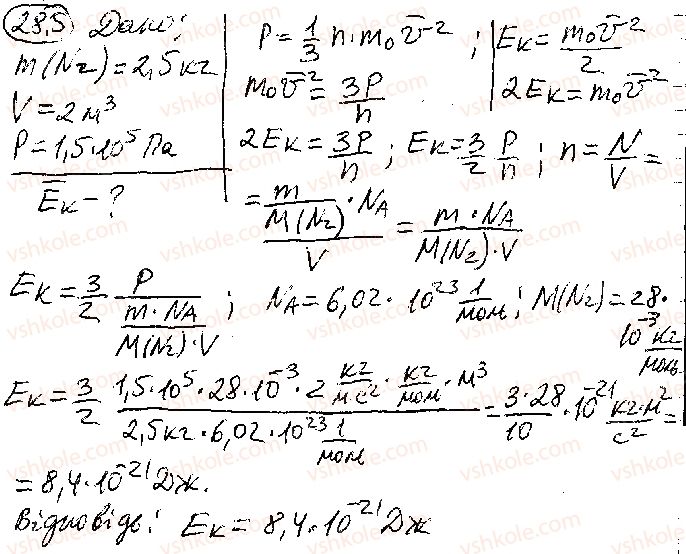 28.5 Дано:
m(N₂) = 2,5 кг
V = 2 м³
P = 1,5·10⁵ Па
E̅к - ?
P = 1/3 n·m₀v̅² ; Eк = m₀v̅²/2
m₀v̅² = 3P/n
2Eк = m₀v̅²
2Eк = 3P/n ; Eк = 3/2 P/n ; n = N/V =
= (m/M(N₂)·Nᴀ)/V = m·Nᴀ/(M(N₂)·V)
Eк = 3/2 P/(m·Nᴀ/(M(N₂)·V)) ; Nᴀ = 6,02·10²³ 1/моль ; M(N₂) = 28·
10⁻³ кг/моль
Eк = 3/2 (1,5·10⁵·28·10⁻³·2 кг/(м·с²)·кг/моль·м³)/(2,5кг·6,02·10²³ 1/моль) = 3·28/10·10⁻²¹ кг·м²/с² =
= 8,4·10⁻²¹ Дж.
Відповідь: Eк = 8,4·10⁻²¹ Дж
vshkole.com